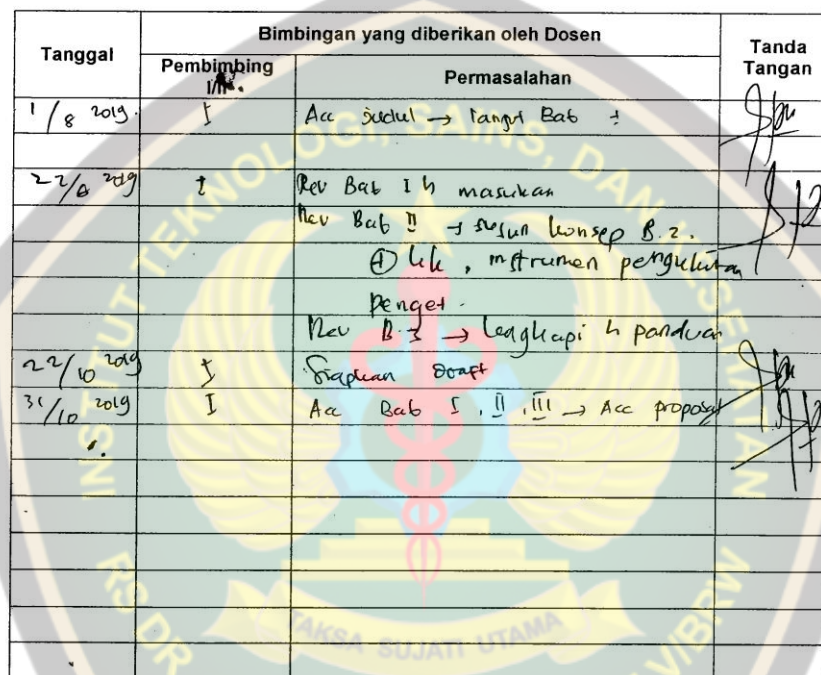 Tanggal
Bimbingan yang diberikan oleh Dosen
Tanda Tangan
Pembimbing I/II
Permasalahan
1/8 2019. I Acc judul → lanjut Bab I
22/8 2019 I Rev Bab I h masukan
Rev Bab II → susun konsep B.2.
+ kk, instrumen pengukuran
penget.
Rev B.3 → lengkapi h panduan
22/10 2019 I Siapkan Draft
31/10 2019 I Acc Bab I, II, III → Acc proposal
INSTITUT TEKNOLOGI, SAINS, DAN KESEHATAN
RS DR
TAKSA SUJATI UTAMA
V/BRW